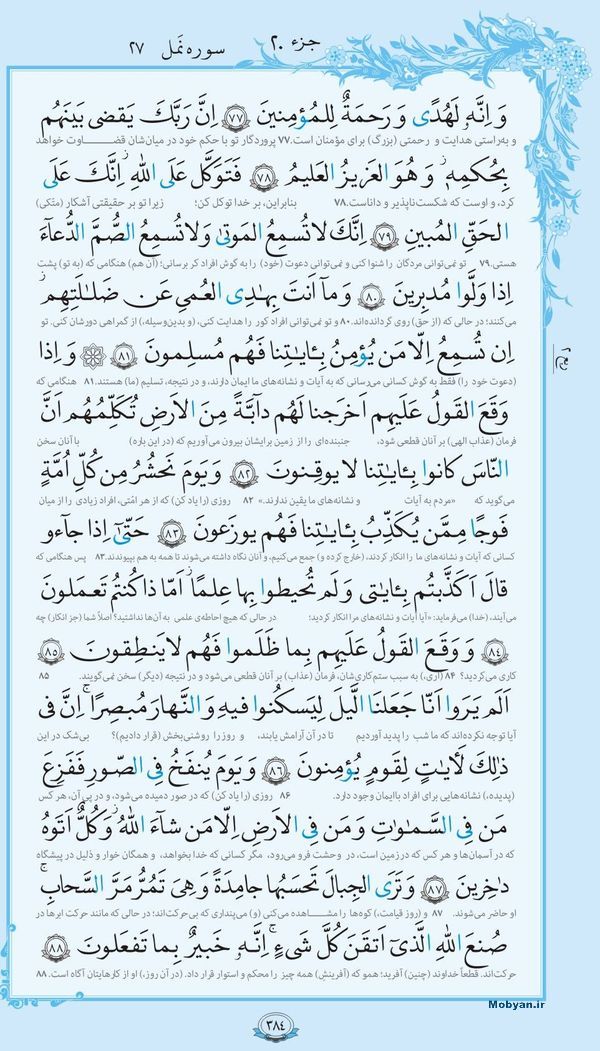 جزء ۲۰ سوره نَمل ۲۷
وَ اِنَّهُ لَهُدًى وَ رَحمَةٌ لِلمُؤمِنينَ ۷۷ اِنَّ رَبَّكَ يَقضى بَينَهُم
و به‌راستی هدایت و رحمتی (بزرگ) برای مؤمنان است.۷۷ پروردگار تو با حکم خود در میان‌شان قضاوت خواهد
بِحُكمِهِ وَ هُوَ العَزيزُ العَليمُ ۷۸ فَتَوَكَّل عَلَى اللهِ اِنَّكَ عَلَى
کرد، و اوست که شکست‌ناپذیر و داناست.۷۸ بنابراین، بر خدا توکل کن؛ زیرا تو بر حقیقتی آشکار (متکی)
الحَقِّ المُبينِ ۷۹ اِنَّكَ لا تُسمِعُ المَوتىٰ وَ لا تُسمِعُ الصُّمَّ الدُّعآءَ
هستی.۷۹ تو نمی‌توانی مردگان را شنوا کنی و نمی‌توانی دعوت (خود) را به گوش افراد کر برسانی؛ (آن هم) هنگامی که (به تو) پشت
اِذا وَلَّوا مُدبِرينَ ۸۰ وَ مآ اَنتَ بِهادِى العُمىِ عَن ضَلٰلَتِهِم
می‌کنند؛ در حالی که (از حق) روی گردانده‌اند.۸۰ و تو نمی‌توانی افراد کور را هدایت کنی، (و بدین‌وسیله،) از گمراهی دورشان کنی. تو
اِن تُسمِعُ اِلّا مَن يُؤمِنُ بِـٔايٰتِنا فَهُم مُسلِمونَ ۸۱ وَ اِذا
(دعوت خود را) فقط به گوش کسانی می‌رسانی که به آیات و نشانه‌های ما ایمان دارند، و در نتیجه، تسلیم (ما) هستند.۸۱ هنگامی که
وَقَعَ القَولُ عَلَيهِم اَخرَجنا لَهُم دآبَّةً مِنَ الاَرضِ تُكَلِّمُهُم اَنَّ
فرمان (عذاب الهی) بر آنان قطعی شود، جنبنده‌ای را از زمین برایشان بیرون می‌آوریم که (در این باره) با آنان سخن
النّاسَ كانوا بِـٔايٰتِنا لا يوقِنونَ ۸۲ وَ يَومَ نَحشُرُ مِن كُلِّ اُمَّةٍ
می‌گوید که «مردم به آیات و نشانه‌های ما یقین ندارند.» ۸۲ روزی (را یاد کن) که از هر امّتی، افراد زیادی را از میان
فَوجًا مِمَّن يُكَذِّبُ بِـٔايٰتِنا فَهُم يوزَعونَ ۸۳ حَتّىٰٓ اِذا جآءو
کسانی که آیات و نشانه‌های ما را انکار کردند، (خارج کرده و) جمع می‌کنیم، و آنان نگاه داشته می‌شوند تا همه به هم بپیوندند.۸۳ پس هنگامی که
قالَ اَكَذَّبتُم بِـٔايٰتى وَ لَم تُحيطوا بِها عِلمًا اَمّا ذا كُنتُم تَعمَلونَ
می‌آیند، (خدا) می‌فرماید: «آیا آیات و نشانه‌های مرا انکار کردید؛ در حالی که هیچ احاطه‌ی علمی به آن‌ها نداشتید؟ اصلاً شما (جز انکار) چه
۸۴ وَ وَقَعَ القَولُ عَلَيهِم بِما ظَلَموا فَهُم لا يَنطِقونَ ۸۵
کاری می‌کردید؟ ۸۴ (آری،) به سبب ستم‌کاری‌شان، فرمان (عذاب) بر آنان قطعی می‌شود و در نتیجه (دیگر) سخن نمی‌گویند. ۸۵
اَلَم يَرَوا اَنّا جَعَلنَا الَّيلَ لِيَسكُنوا فيهِ وَ النَّهارَ مُبصِرًا اِنَّ فى
آیا توجه نکرده‌اند که ما شب را پدید آوردیم تا در آن آرامش یابند، و روز را روشنی‌بخش (قرار دادیم)؟ بی‌شک در این
ذٰلِكَ لَأيٰتٍ لِقَومٍ يُؤمِنونَ ۸۶ وَ يَومَ يُنفَخُ فِى الصّورِ فَفَزِعَ
(پدیده،) نشانه‌هایی برای افراد باایمان وجود دارد. ۸۶ روزی (را یاد کن) که در صور دمیده می‌شود، و در پی آن، هر کس
مَن فِى السَّمٰوٰتِ وَ مَن فِى الاَرضِ اِلّا مَن شآءَ اللهُ وَ كُلٌّ اَتَوهُ
که در آسمان‌ها و هر کس که در زمین است، در وحشت فرو می‌رود، مگر کسانی که خدا بخواهد، و همگان خوار و ذلیل در پیشگاه
داخِرينَ ۸۷ وَ تَرَى الجِبالَ تَحسَبُها جامِدَةً وَ هِىَ تَمُرُّ مَرَّ السَّحابِ
او حاضر می‌شوند. ۸۷ و (روز قیامت،) کوه‌ها را مشاهده می‌کنی (و) می‌پنداری که بی حرکت‌اند؛ در حالی که مانند حرکت ابرها در
صُنعَ اللهِ الَّذى اَتقَنَ كُلَّ شَىءٍ اِنَّهُ خَبيرٌ بِما تَفعَلونَ ۸۸
حرکت‌اند. قطعاً خداوند (چنین) آفرید؛ همو که (آفرینش) همه چیز را محکم و استوار قرار داد. (در آن روز،) او از کارهایتان آگاه است. ۸۸
Mobyan.ir
۳۸۴